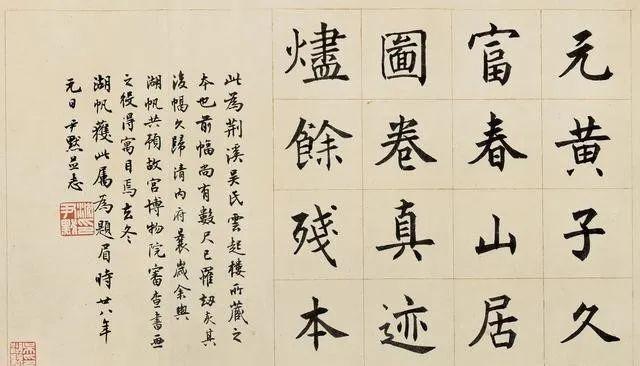 元黃子久
富春山居
圖卷真迹
燼餘殘本
此為荆溪吳氏雲起樓所藏之
本也前幅尚有數尺已罹劫灰其
後幅久歸清内府曩歲余與
湖帆共預故宮博物院審查書畫
之役得寓目焉去冬
湖帆獲此属為題眉時廿八年
元日尹默並志